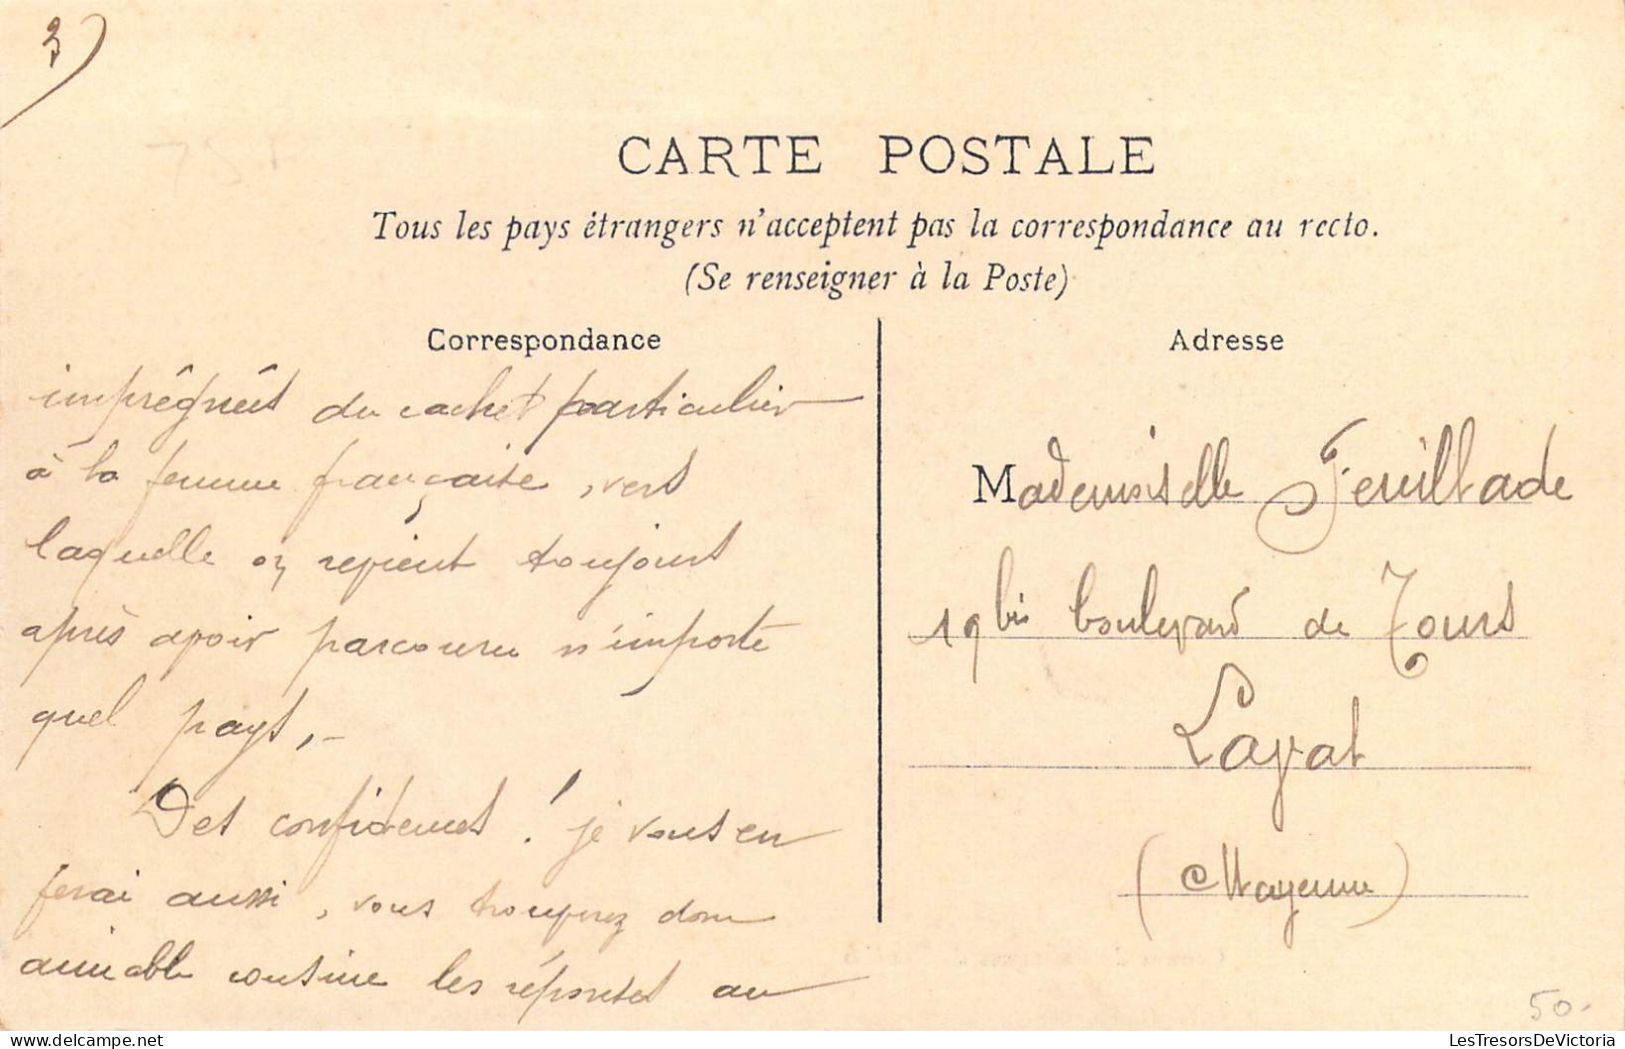 3)
CARTE POSTALE
Tous les pays étrangers n'acceptent pas la correspondance au recto.
(Se renseigner à la Poste)
Correspondance
imprégnés du cachet particulier
à la femme française, vers
laquelle on revient toujours
après avoir parcouru n'importe
quel pays,-
Des confidences! je vous en
ferai aussi, vous trouverez donc
aimable cousine les réponses au
Adresse
Mademoiselle Feuillade
19 bis boulevard de Tours
Laval
(Mayenne)
50.-
LesTresorsDeVictoria